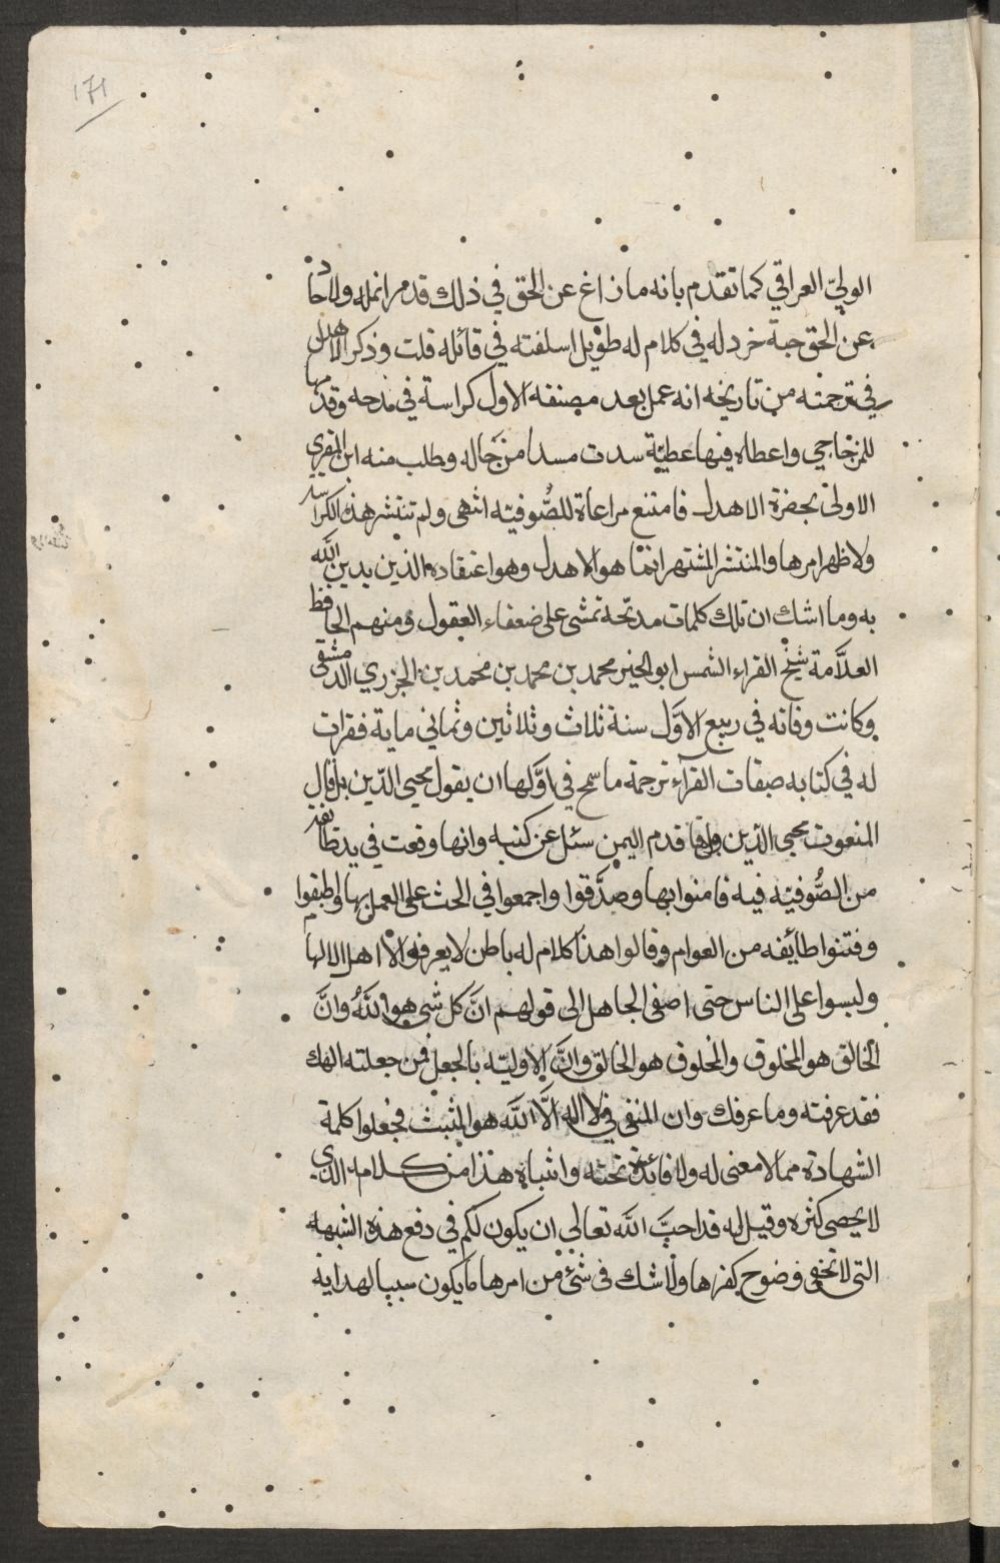 ١٧١
الوليّ العراقي كما تقدم بانه ما زاغ عن الحق في ذلك قدم انمله ولا حاد
عن الحق حبة خردله في كلام له طويل اسلفته في قائله قلت وذكر الاهدل
في ترجمته من تاريخه انه عمل بعد مصنفه الاول كراسة في مدحه وقدمها
للمزجاجي واعطاه فيها عطيّة سدت مسدا من حاله وطلب منه ابن المقري
الاولى بحضرة الاهدل فامتنع مراعاة للصُّوفيّه انتهى ولم تنتشر هذه الكراسة
ولا ظهر امرها والمنتشر المشتهر انما هو الاهدل وهو اعتقاده الذين يدين الله
به وما اشك ان تلك كلمات مدبّحة تمشي على ضعفاء العقول ومنهم الحافظ
العلاَّمة شيخ القراء الشمس ابو الخير محمد بن محمد بن محمد بن الجزري الدمشقي
وكانت وفاته في ربيع الاوَّل سنة ثلاث وثلاثين وثماني ماية فقرات
له في كتابه صبقات القرآء ترجمة ما سمح في اوّلها ان يقول محيي الدّين بل قال
المنعوت محيي الدّين ولما قدم اليمن سئل عن كتبه وانها وقعت في يد طائفة
من الصُّوفيّه فيه فامنوا بها وصدَّقوا واجمعوا في الحث على العمل بها واطبقوا
وفتنوا طايفه من العوام وقالوا هذا كلام له باطن لا يعرفه الا اهل الالهام
ولبسوا على الناس حتى اصغى الجاهل الى قولهم انَّ كل شي هو اللّه وانَّ
الخالق هو المخلوق والمخلوق هو الخالق وانَّ الاوليّه بالجعل فمن جعلته الهك
فقد عرفته وما عرفك وان المنفي في لا اله الَّا اللّه هو المثبت فجعلوا كلمة
الشهادة مما لا معنى له ولا فائدة تحته واشباه هذا من كلامه الذي
لا يحصى كثره وقيل له قد احبَّ اللّه تعالى ان يكون لكم في دفع هذه الشبهه
التى لا تخفى وضوح كفرها ولا شك فى شئ من امرها ما يكون سببا لهداية